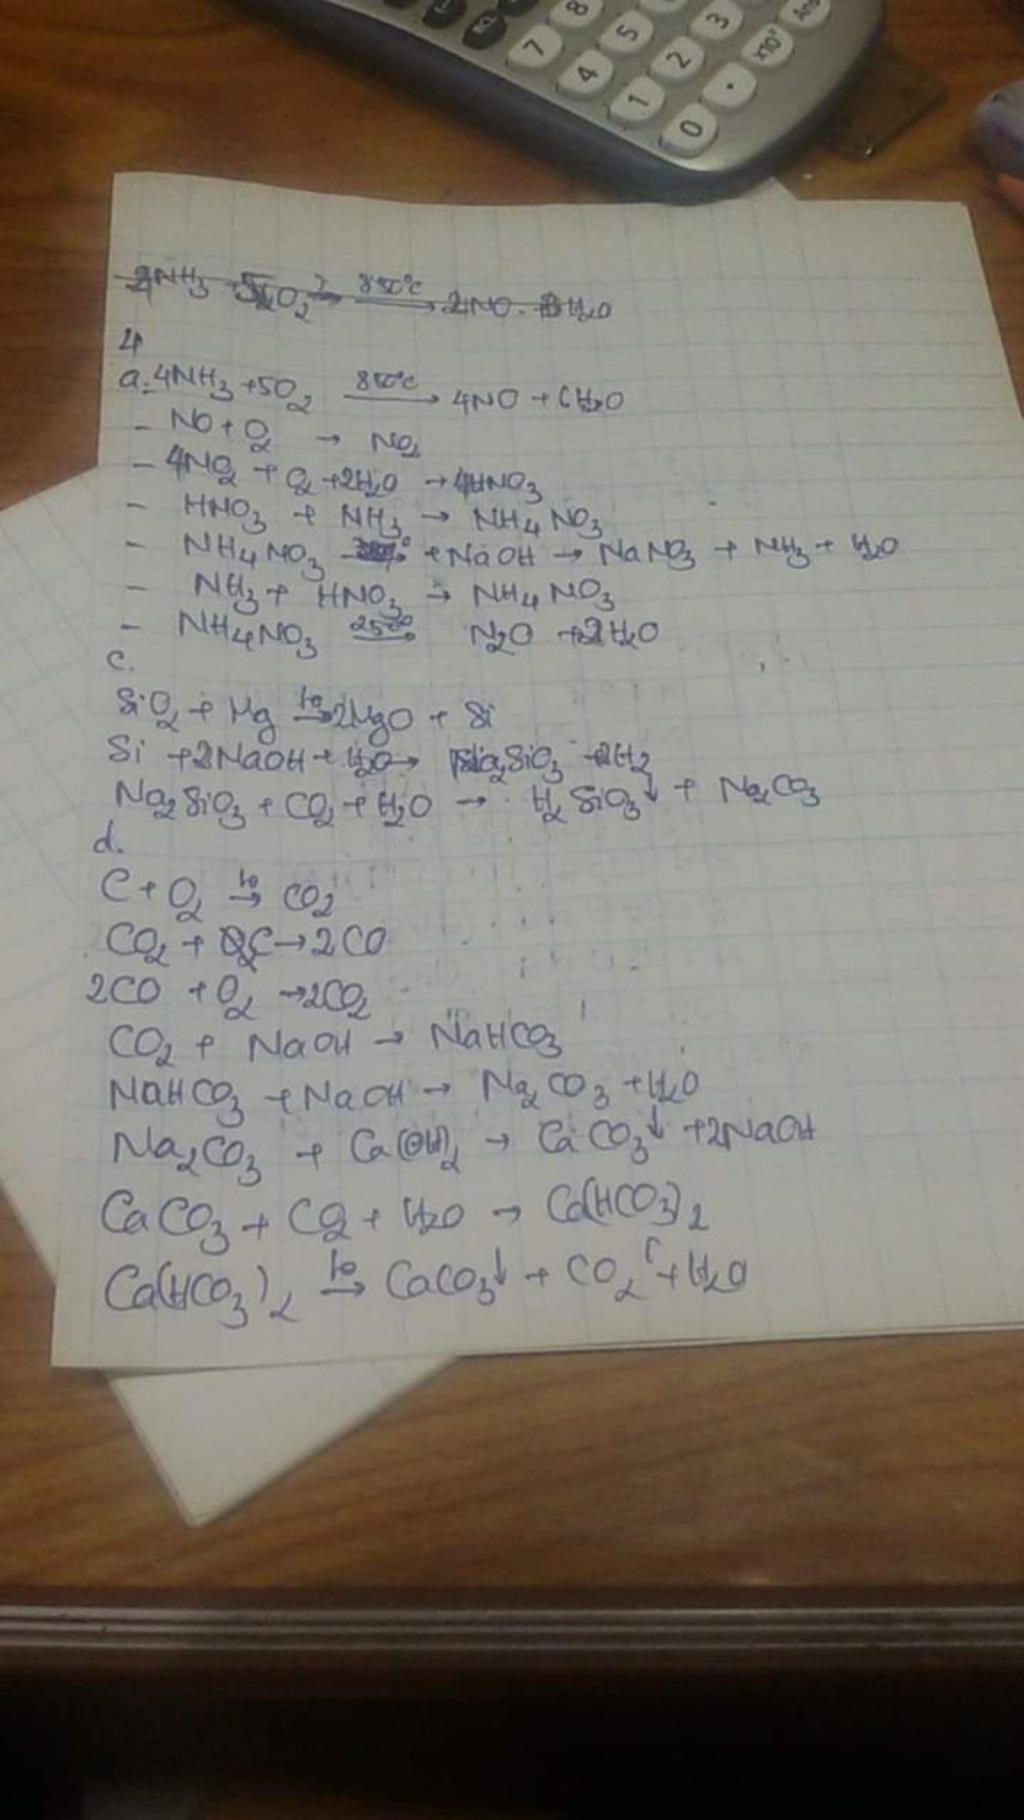 7 8
4 5
1 2 3
0 . x10ˣ Ans
2NH3 5O2 → 850°C 2NO + 3H2O
4
a. 4NH3 + 5O2 850°C → 4NO + 6H2O
- NO + O2 → NO2
- 4NO2 + O2 + 2H2O → 4HNO3
- HNO3 + NH3 → NH4NO3
- NH4NO3 + NaOH → NaNO3 + NH3 + H2O
- NH3 + HNO3 → NH4NO3
- NH4NO3 250° → N2O + 2H2O
c.
SiO2 + Mg to → 2MgO + Si
Si + 2NaOH + H2O → Na2SiO3 + 2H2
Na2SiO3 + CO2 + H2O → H2SiO3↓ + Na2CO3
d.
C + O2 to → CO2
CO2 + C → 2CO
2CO + O2 → 2CO2
CO2 + NaOH → NaHCO3
NaHCO3 + NaOH → Na2CO3 + H2O
Na2CO3 + Ca(OH)2 → CaCO3↓ + 2NaOH
CaCO3 + CO2 + H2O → Ca(HCO3)2
Ca(HCO3)2 to → CaCO3↓ + CO2↑ + H2O